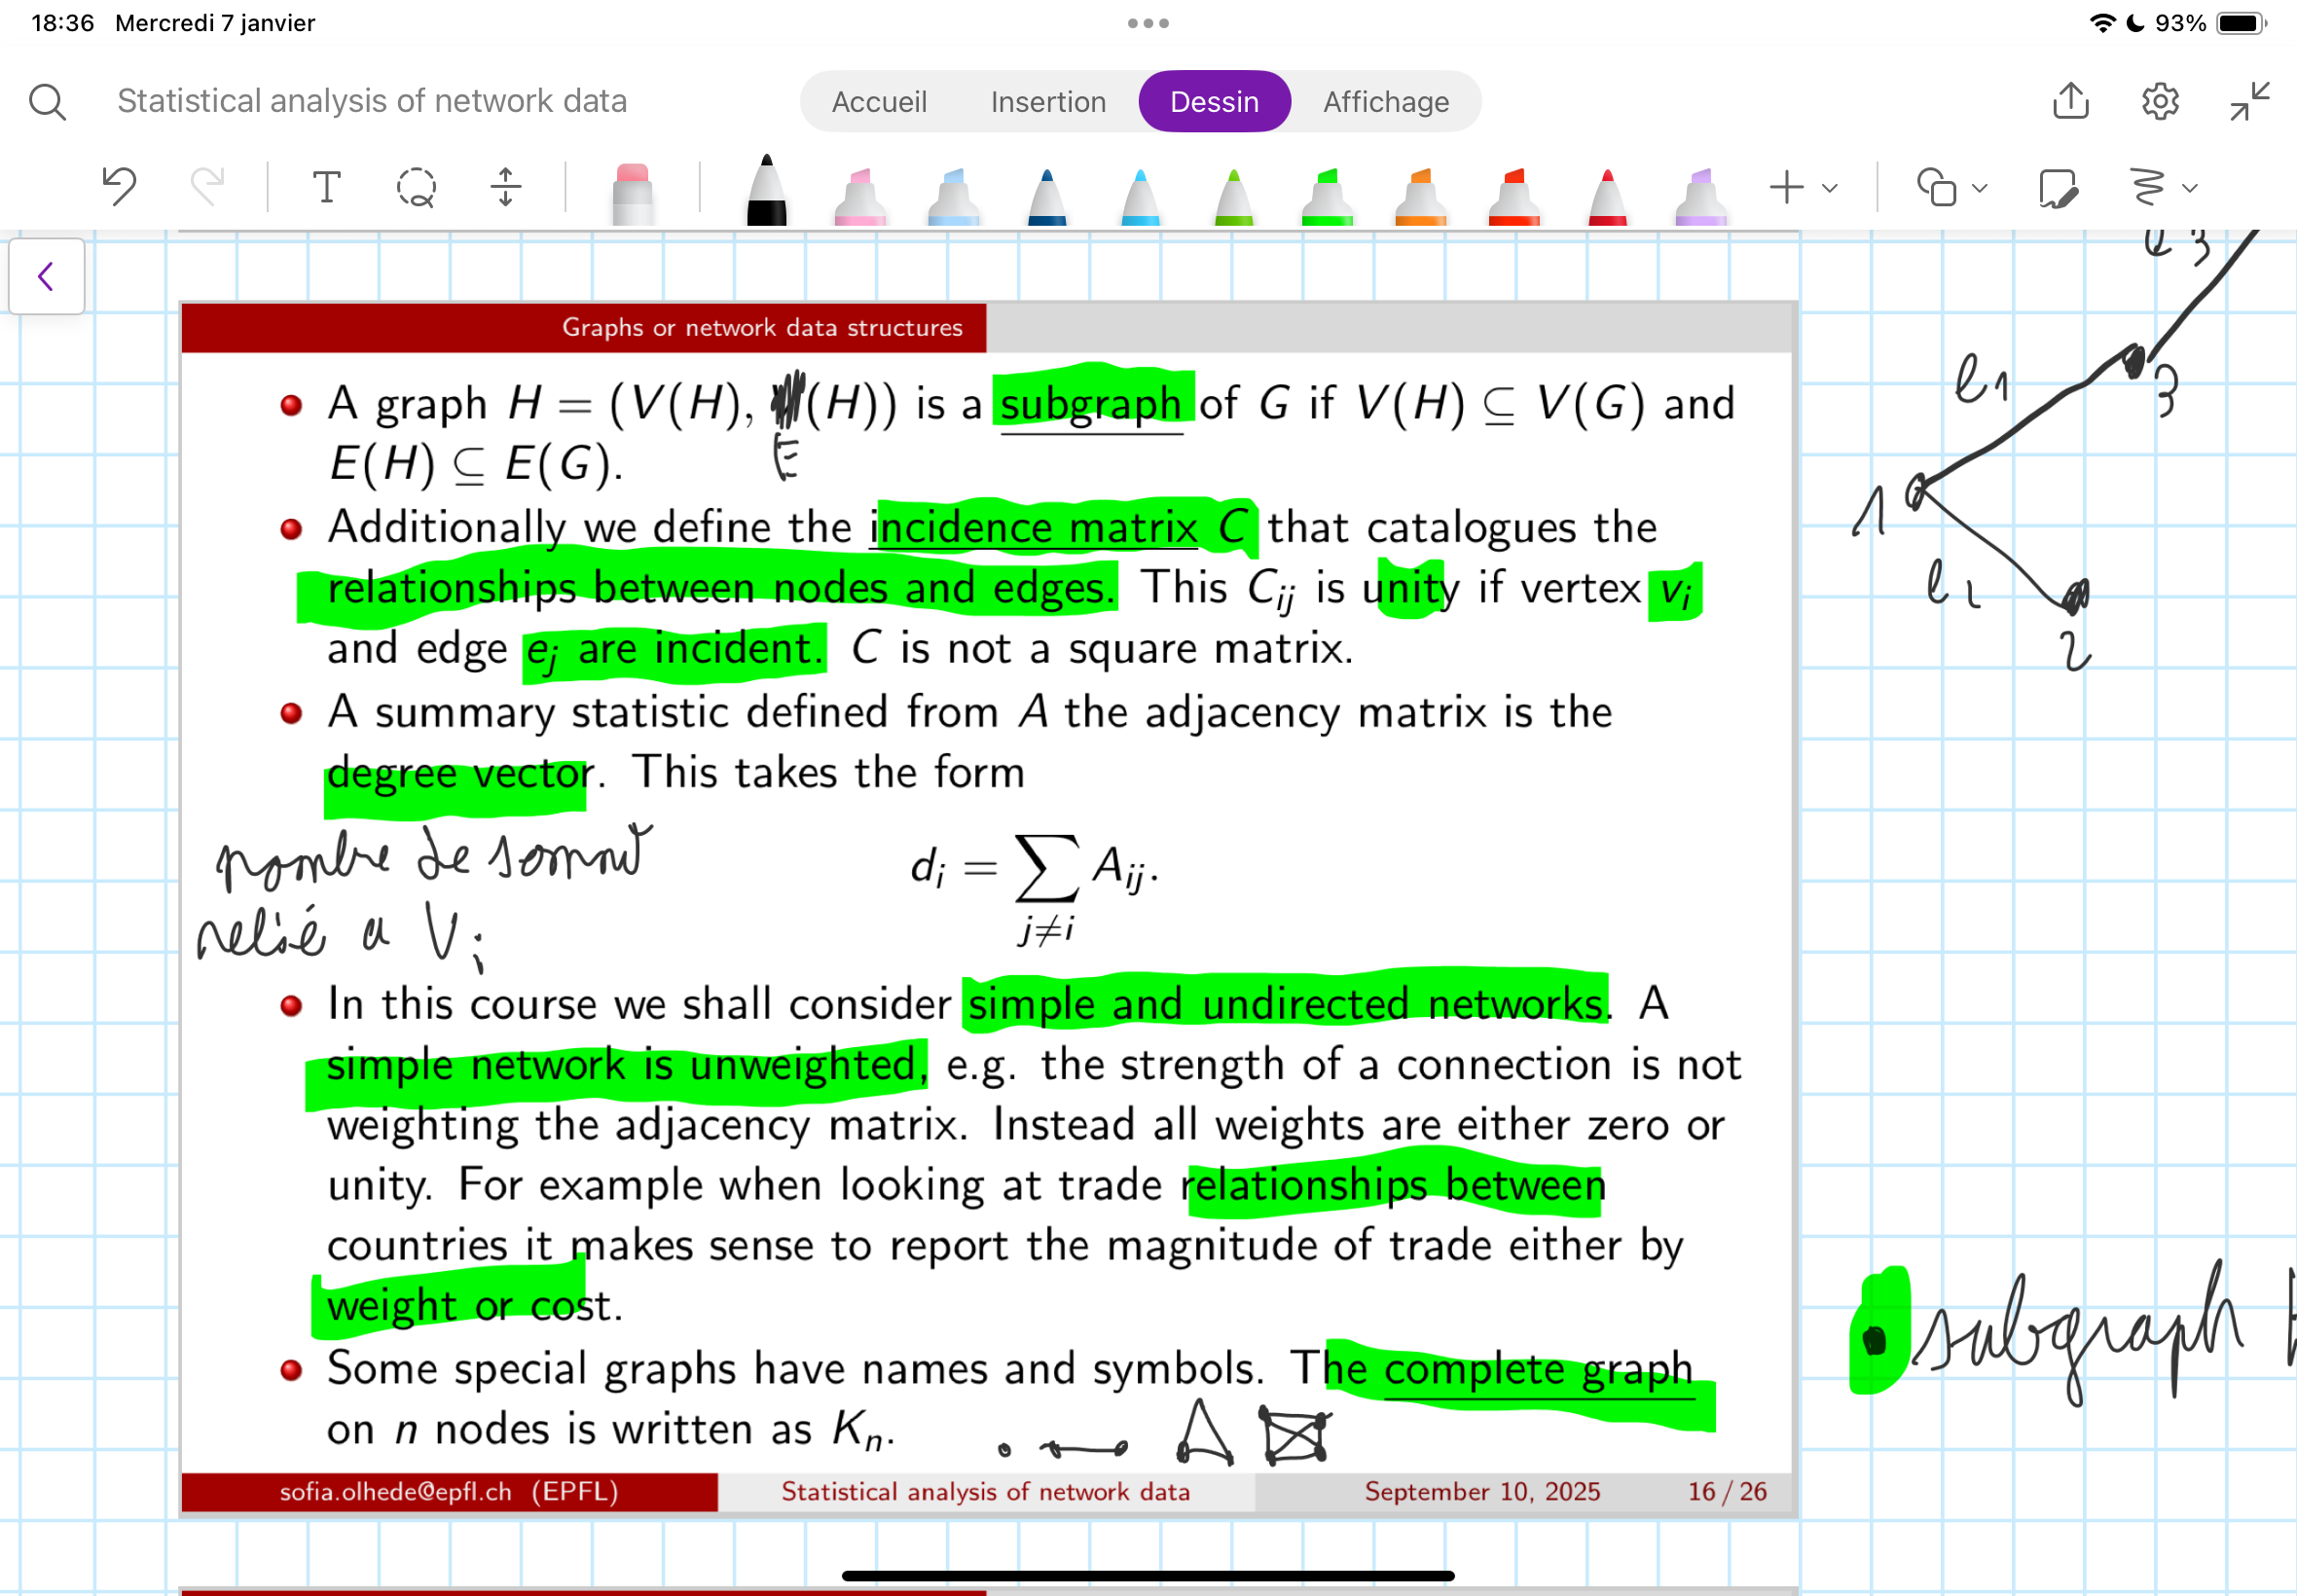 18:36 Mercredi 7 janvier
93%
Statistical analysis of network data
Accueil Insertion Dessin Affichage
T
Graphs or network data structures
A graph H = (V(H), (H)) is a subgraph of G if V(H) ⊆ V(G) and
E
E(H) ⊆ E(G).
Additionally we define the incidence matrix C that catalogues the
relationships between nodes and edges. This Cij is unity if vertex vi
and edge ej are incident. C is not a square matrix.
A summary statistic defined from A the adjacency matrix is the
degree vector. This takes the form
nombre de sommet
relié a Vi
di = ∑j≠i Aij.
In this course we shall consider simple and undirected networks. A
simple network is unweighted, e.g. the strength of a connection is not
weighting the adjacency matrix. Instead all weights are either zero or
unity. For example when looking at trade relationships between
countries it makes sense to report the magnitude of trade either by
weight or cost.
Some special graphs have names and symbols. The complete graph
on n nodes is written as Kn.
sofia.olhede@epfl.ch (EPFL) Statistical analysis of network data September 10, 2025 16 / 26
e3
e1
3
1
e2
2
subgraph